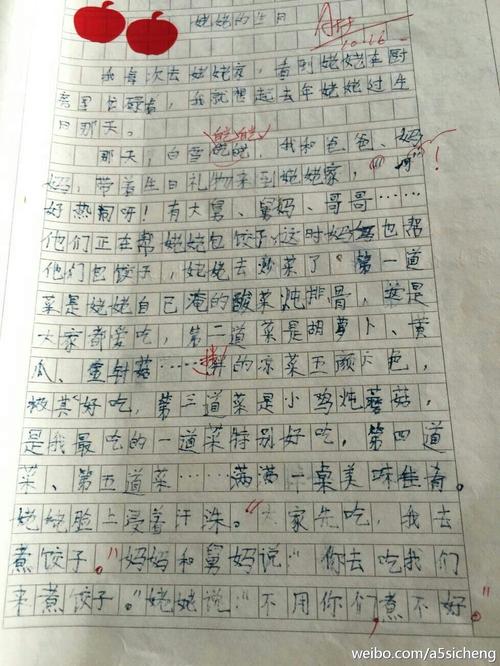 姥姥的生日
10.16
我每次去姥姥家，看到姥姥在厨
房里忙碌着，我就想起去年姥姥过生
日那天。
皑皑
那天，白雪姥姥，我和爸爸、妈
妈，带着生日礼物来到姥姥家，“啊”！
好热闹呀！有大舅、舅妈、哥哥……
他们正在帮姥姥包饺子，这时妈妈也帮
他们包饺子，姥姥去炒菜了。第一道
菜是姥姥自己淹的酸菜炖排骨，这是
大家都爱吃，第二道菜是胡萝卜、黄
瓜、金针菇……拌的凉菜五颜六色，
极其好吃，第三道菜是小鸡炖蘑菇，
是我最吃的一道菜特别好吃，第四道
菜、第五道菜……满满一桌美味佳肴。
姥姥脸上浸着汗珠。“大家先吃，我去
煮饺子。”妈妈和舅妈说“你去吃我们
来煮饺子。”姥姥说“不用你们，煮不好。”
weibo.com/a5sicheng